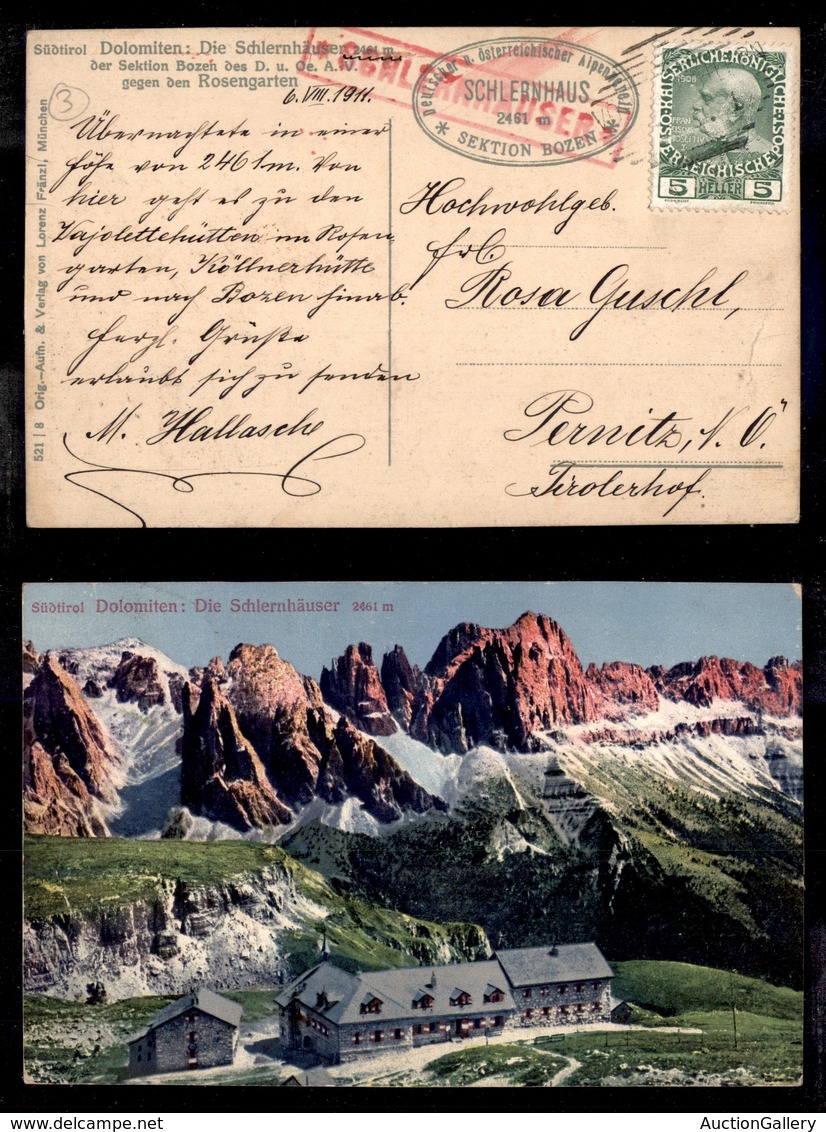 Südtirol Dolomiten: Die Schlernhäuser 2461 m
der Sektion Bozen des D. u. Oe. A. V.
gegen den Rosengarten
3
6. VIII. 1911.
Übernachtete in einer
Höhe von 2461m. Von
hier geht es zu den
Vajolettehütten im Rosen-
garten, Köllnerhütte
und nach Bozen hinab.
Herzl. Grüße
erlaubt sich zu senden
M. Hallasche
521 | 8 Orig.-Aufn. & Verlag von Lorenz Fränzl, München
SCHLERNHÄUSER
Deutscher u. österreichischer Alpenverein
SCHLERNHAUS
2461 m
* SEKTION BOZEN *
KAISERLICHE KÖNIGLICHE
ÖSTERREICHISCHE
1908
5 HELLER 5
Hochwohlgeb.
Frl.
Rosa Guschl,
Pernitz, N. Ö.
Tirolerhof.
Südtirol Dolomiten: Die Schlernhäuser 2461 m
www.AuctionGallery.com